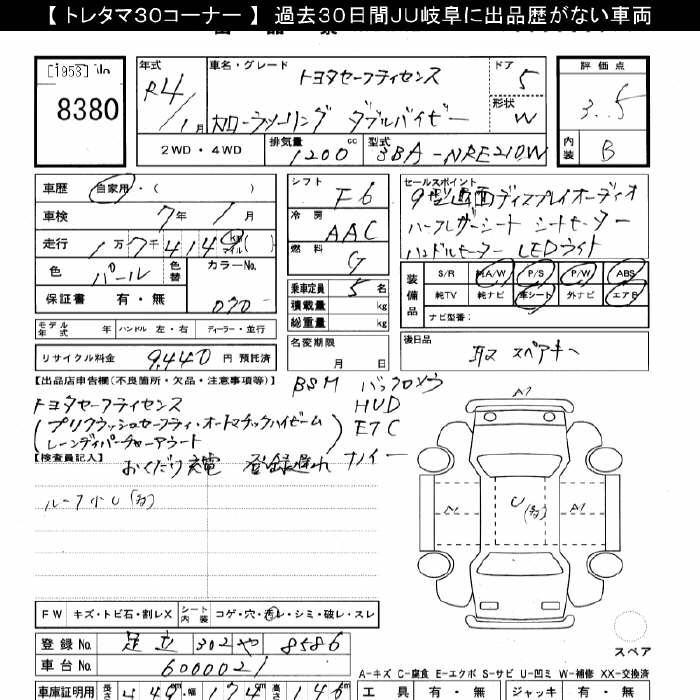 【 トレタマ30コーナー 】 過去30日間JU岐阜に出品歴がない車両
[1953] No
8380
年式 R4/1月
車名・グレード トヨタセーフティセンス
カローラツーリング ダブルバイビー
ドア 5
形状 W
評価点 3.5
内装 B
2WD・4WD 排気量 1200 cc 型式 3BA-NRE210W
車歴 自家用・( )
車検 7年 1月
走行 1万7千414 km マイル ( )
色 パール 色替 カラーNo. 070
保証書 有・無
モデル年式 年 ハンドル 左・右 ディーラー・並行
リサイクル料金 9,440 円 預託済
シフト F6
冷房 AAC
燃料 G
乗車定員 5 名
積載量 kg
総重量 kg
名変期限 月 日
セールスポイント
9型画面ディスプレイオーディオ
ハーフレザーシート シートヒーター
ハンドルヒーター LEDライト
装備品 S/R 純A/W P/S P/W ABS
純TV 純ナビ 革シート 外ナビ エアB
ナビ型番:
後日品 取 スペアキー
【出品店申告欄(不良箇所・欠品・注意事項等)】
トヨタセーフティセンス
(プリクラッシュセーフティ・オートマチックハイビーム
レーンディパーチャーアラート)
BSM バックソナー
HUD
ETC
ナノイー
【検査員記入】
おくだけ充電 登録遅れ
ルーフ小U(多)
A1
A1 U(多) A1
FW キズ・トビ石・割レX シート内装 コゲ・穴・汚レ・シミ・破レ・スレ
登録No. 足立 302 や 8586
車台No. 6000021
スペア
A-キズ C-腐食 E-エクボ S-サビ U-凹ミ W-補修 XX-交換済
車庫証明用 長さ 449 cm 幅 174 cm 高さ 146 cm
工具 有・無 ジャッキ 有・無